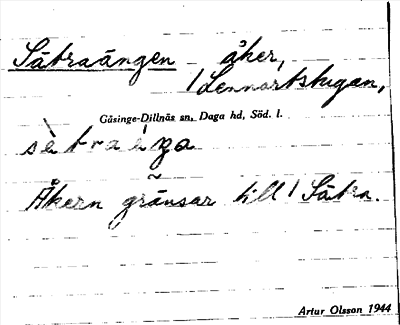 Sätraängen åker,
/ Lennartstugan,
Gåsinge-Dillnäs sn, Daga hd, Söd. l.
sètraèŋa
Åkern gränsar till / Sätra.
Artur Olsson 1944